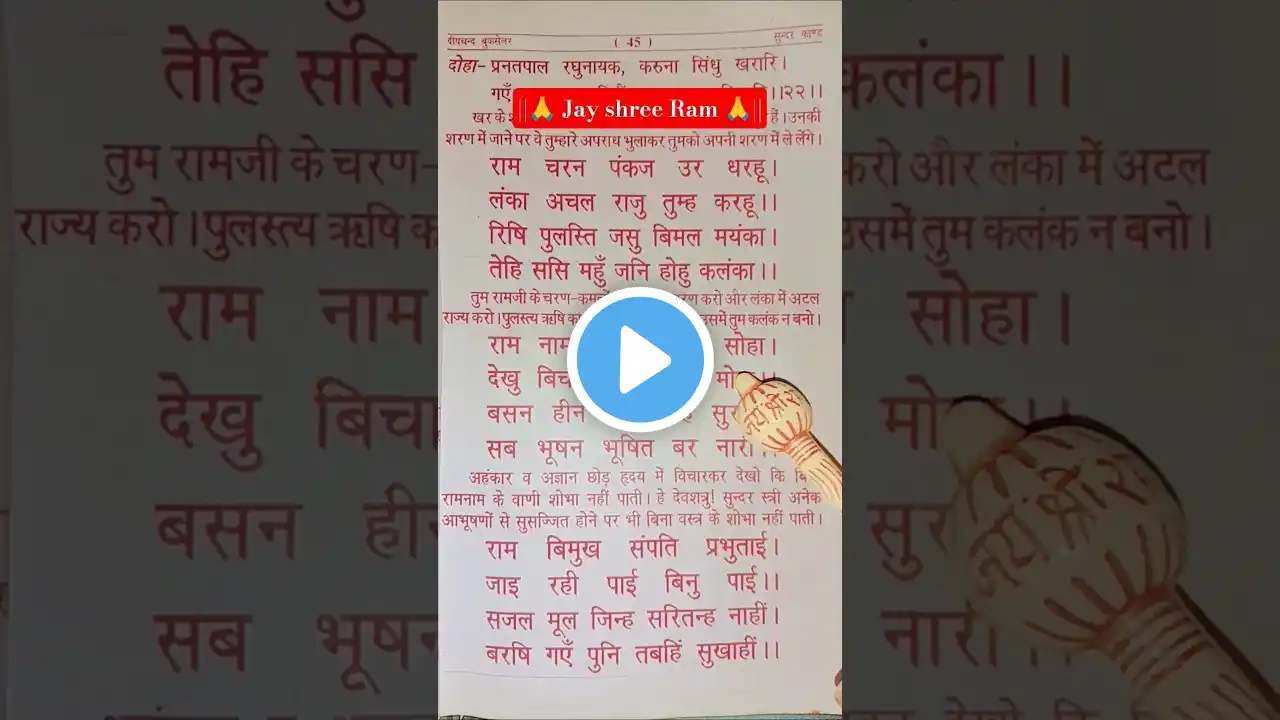 दीपचन्द बुकसेलर ( 45 ) सुन्दर काण्ड
दोहा- प्रनतपाल रघुनायक, करुना सिंधु खरारि।
गएँ ।।२२।।
|| 🙏 Jay shree Ram 🙏 ||
खर के हैं। उनकी
शरण में जाने पर वे तुम्हारे अपराध भुलाकर तुमको अपनी शरण में ले लेंगे।
राम चरन पंकज उर धरहू।
लंका अचल राजु तुम्ह करहू।।
रिषि पुलस्ति जसु बिमल मयंका।
तेहि ससि महुँ जनि होहु कलंका।।
तुम रामजी के चरण-कमलों करो और लंका में अटल
राज्य करो। पुलस्त्य ऋषि उसमें तुम कलंक न बनो।
राम नाम सोहा।
देखु
बसन हीन
सब भूषन भूषित बर नारी
अहंकार व अज्ञान छोड़ हृदय में विचारकर देखो कि
रामनाम के वाणी शोभा नहीं पाती। हे देवशत्रु! सुन्दर स्त्री अनेक
आभूषणों से सुसज्जित होने पर भी बिना वस्त्र के शोभा नहीं पाती।
राम बिमुख संपति प्रभुताई।
जाइ रही पाई बिनु पाई।।
सजल मूल जिन्ह सरितन्ह नाहीं।
बरषि गएँ पुनि तबहिं सुखाहीं।।